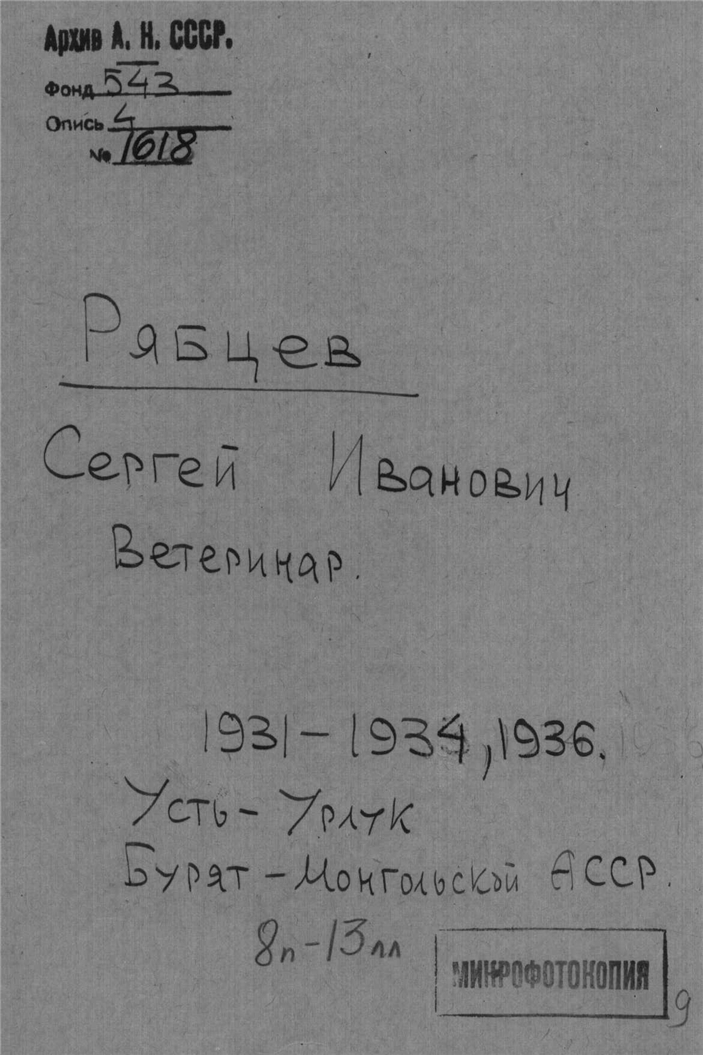 Архив А. Н. СССР.
Фонд 543
Опись 4
№ 1618
Рябцев
Сергей Иванович
Ветеринар.
1931 – 1934, 1936.
Усть – Урлук
Бурят – Монгольской АССР.
8п – 13лл
МИКРОФОТОКОПИЯ
9